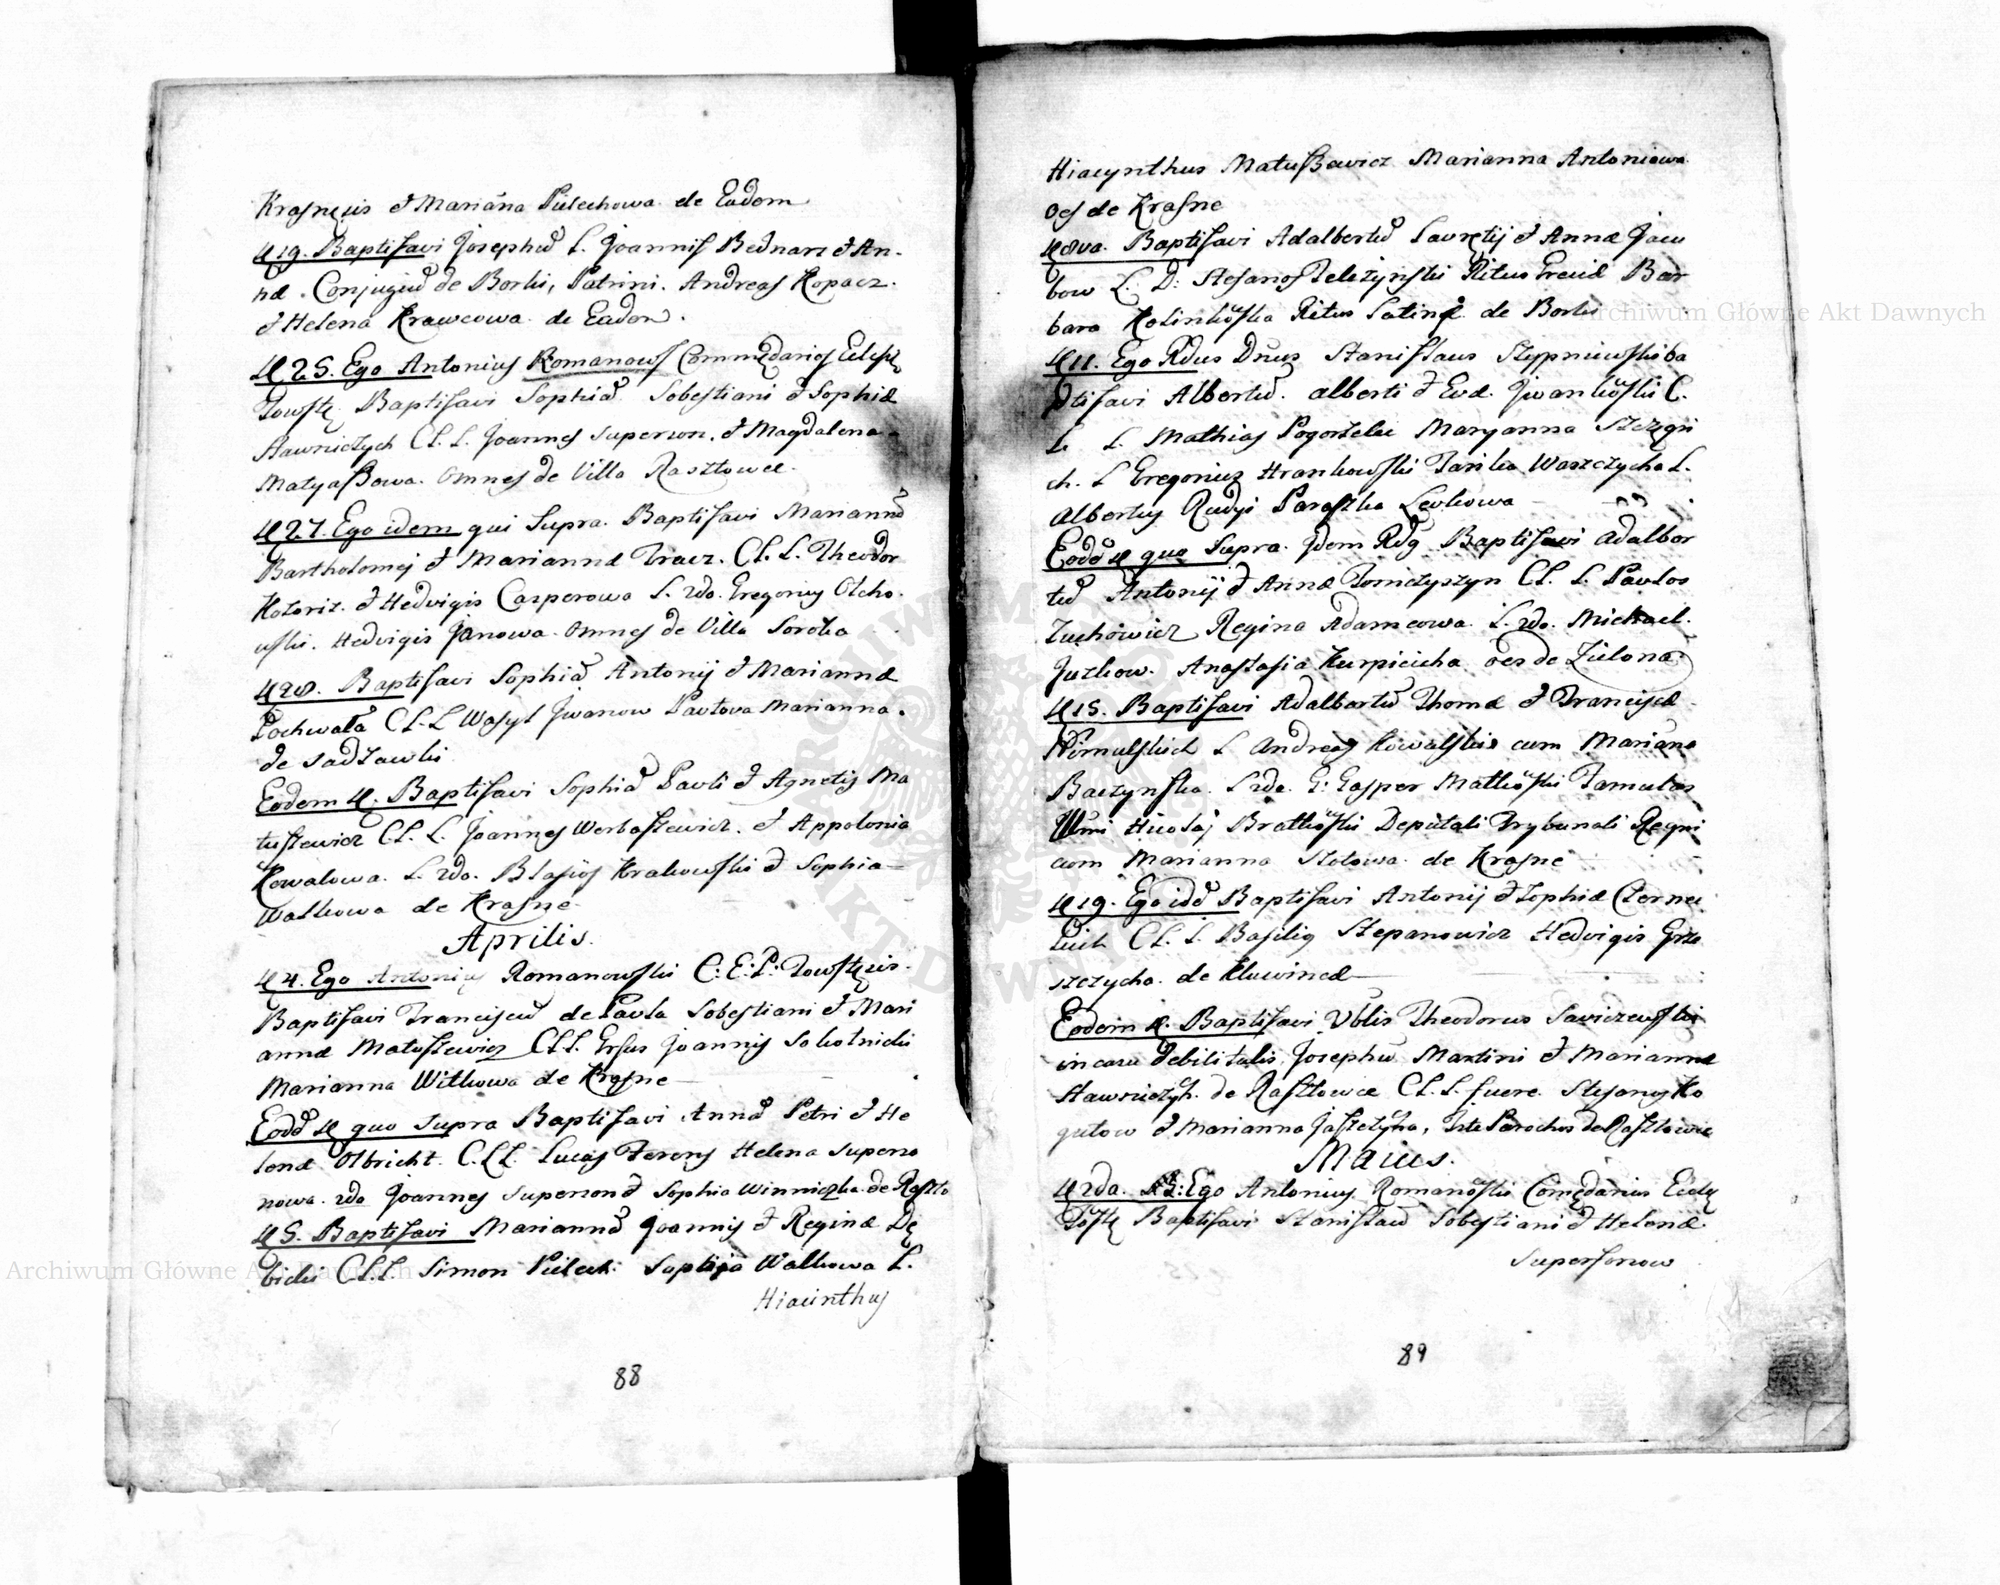 Krasnęsis & Mariana Pielechowa de Eadem
19. Baptisavi Josephū L. Joannis Bednarz & An-
næ. Conjugiū de Borki, Patrini. Andreas Kopacz.
& Helena Krawcowa de Eadem.
25. Ego Antonius Romanows Commędarius Eclesię
Towstę Baptisavi Sophiā Sobestiani & Sophiæ
Stawniczych CL.L. Joannes Superson, & Magdalena
Matyaßowa. Omnes de Villa Rasztowce.
27. Ego idem qui Supra. Baptisavi Mariannā
Bartholomej & Mariannæ Tracz. CL.L. Theodor
Kotoriz. & Hedvigis Casperowa L. 2do. Gregorius Olcho.
wski. Hedvigis Janowa. Omnes de Villa Soroka
28. Baptisavi Sophiā Antonij & Mariannæ
Pochwała CL.L Wasyl Jwanow Pawłowa Marianna.
de Sadzawki
Eodem Baptisavi Sophiā Pauli & Agnetis Ma
tuszewicz CL.L. Joannes Werbaszewicz. & Appolonia
Kowalowa. L. 2do. Blasios Krakowski & Sophia
Walkowa de Krasne
Aprilis.
4. Ego Antonius Romanowski C: E: P: Towstęsis.
Baptisavi Franciscū de Paula Sobestiani & Mari
annæ Matuszewicz CL.L. Joannis Sokolnicki
Marianna Witkowa de Krasne
Eodē quo Supra Baptisavi Annā Petri & He
lenæ Olbricht. C.L.L. Lucas Ferens Helena Superso
nowa. 2do Joannes Superson & Sophia Winniczka de Raszto
5. Baptisavi Mariannā Joannis & Reginæ Dę
bicki CL.L. Simon Pielech Sophija Walkowa L.
Hiacinthus
88
Hiacynthus Matußewicz Marianna Antoniowa
oēs de Krasne
8va. Baptisavi Adalbertū Laurętij & Annæ Jacu
bow L. D: Stefanos Zeleżynski Ritus Greciæ Bar
bara Kolinkoska Ritus Latinæ de Borki
11. Ego Rdus Dnus Stanislaus Stypniewski ba
ptisavi Albertū. alberti & Evæ. Jwankoski C.
L. L. Mathias Pogorzelec Maryanna Szczęsni
ch. L Gregorius Hrankowski Parska Waszczycha L.
Albertus Rudyi Paraszka Lewkowa
Eodē quo Supra. Jdem Rdg Baptisavi adalber
tū Antonij & Annæ Tomczyszyn CL. L. Pavlos
Zuchowicz Regina Adamcowa. L. 2do. Michael.
Juzkow. Anastasia Karpiecicha oes de Zielona
15. Baptisavi Adalbertū Thomæ & Franciscæ
L Andreas Kowalskie cum Mariana
Baczynska. L 2do. G: Gasper Matkoski Famulos
Wmi Nicolaj Bratkoski Deputati Trybunali Regni
cum Marianna Szolowa. de Krasne
19. Ego idē Baptisavi Antonij & Zophiæ Czerne
CL. L. Basilig Stepanowicz Hedvigis Grze
szczycha. de Kluwincæ
Eodem Baptisavi Vblis Theodorus Saviczewski
in casu debilitatis Josephū Martini & Mariannæ
Stawniczych. de Rasztowce CL.L. fuere Stefanus Ko
gutow & Marianna Jaszczyna, Iste Parochus de Rasztowie
Maius.
2da. Ego Antonius Romanoski Comędarius Eccle
Toste Baptisavi Stanislaū Sobestiani & Helenæ
Supersonow
89
Archiwum Główne Akt Dawnych
Archiwum Główne Akt Dawnych
ARCHIWUM GŁÓWNE AKT DAWNYCH